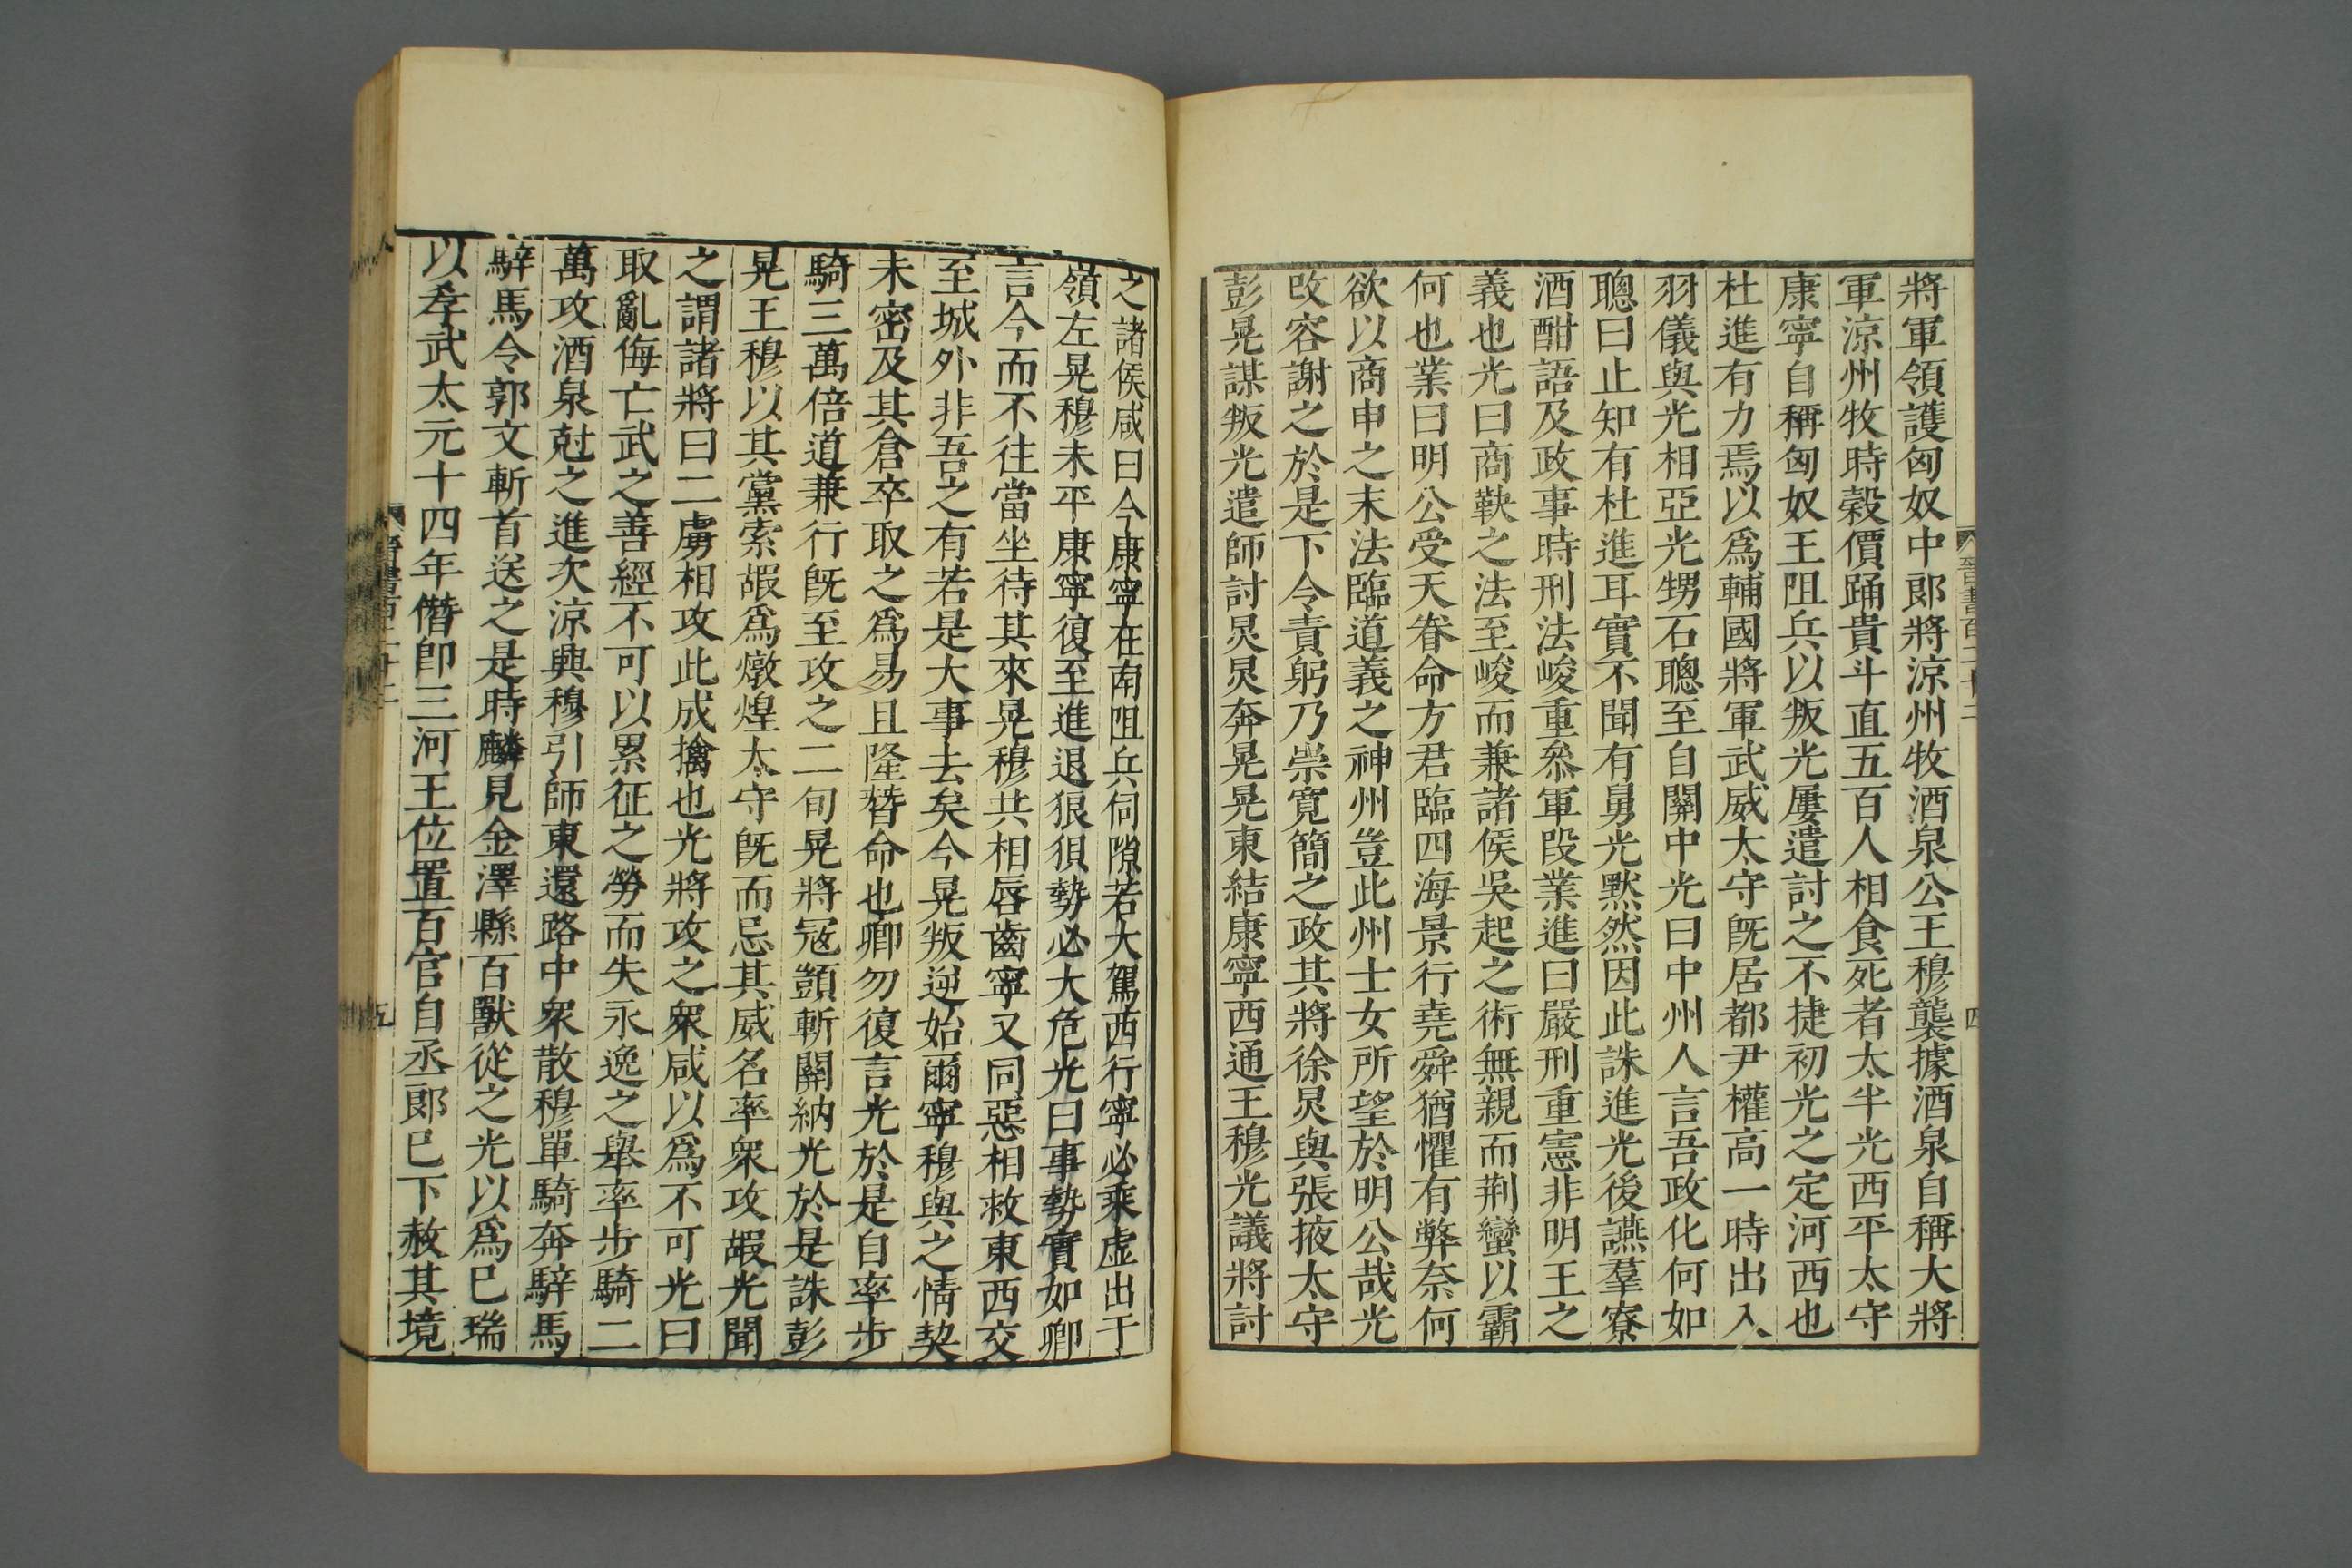 將軍領護匈奴中郎將涼州牧酒泉公王穆襲據酒泉自稱大將
軍涼州牧時穀價踊貴斗直五百人相食死者太半光西平太守
康寧自稱匈奴王阻兵以叛光屢遣討之不捷初光之定河西也
杜進有力焉以爲輔國將軍武威太守旣居都尹權高一時出入
羽儀與光相亞光甥石聰至自關中光曰中州人言吾政化何如
聰曰止知有杜進耳實不聞有舅光默然因此誅進光後讌羣寮
酒酣語及政事時刑法峻重叅軍段業進曰嚴刑重憲非明王之
義也光曰商鞅之法至峻而兼諸侯吳起之術無親而荆蠻以霸
何也業曰明公受天眷命方君臨四海景行堯舜猶懼有弊奈何
欲以商申之末法臨道義之神州豈此州士女所望於明公哉光
改容謝之於是下令責躬乃崇寛簡之政其將徐炅與張掖太守
彭晃謀叛光遣師討炅炅奔晃晃東結康寧西通王穆光議將討
之諸侯咸曰今康寧在南阻兵伺隙若大駕西行寧必乘虛出于
嶺左晃穆未平康寧復至進退狼狽勢必大危光曰事勢實如卿
言今而不往當坐待其來晃穆共相脣齒寧又同惡相救東西交
至城外非吾之有若是大事去矣今晃叛逆始爾寧穆與之情契
未密及其倉卒取之爲易且隆替命也卿勿復言光於是自率步
騎三萬倍道兼行旣至攻之二旬晃將寇顗斬關納光於是誅彭
晃王穆以其黨索嘏爲燉煌太守旣而忌其威名率衆攻嘏光聞
之謂諸將曰二虜相攻此成擒也光將攻之衆咸以爲不可光曰
取亂侮亡武之善經不可以累征之勞而失永逸之舉率步騎二
萬攻酒泉尅之進次涼興穆引師東還路中衆散穆單騎奔騂馬
騂馬令郭文斬首送之是時麟見金澤縣百獸從之光以爲巳瑞
以孝武太元十四年僭卽三河王位置百官自丞郎巳下赦其境
晉書百二十二
四
五